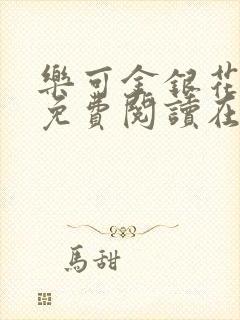 樂可金銀花
免費閱讀在
馬甜